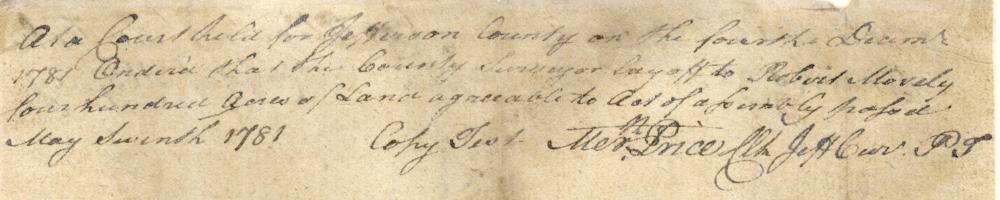 At a Court held for Jefferson County on the fourth Decemr
1781 Orderd that the County Surveyor lay off to Robert Movely
four hundred Acres of Land agreeable to Act of assembly passed
May Seventh 1781 Copy Test Merth. Price Clk Jeff Cur.